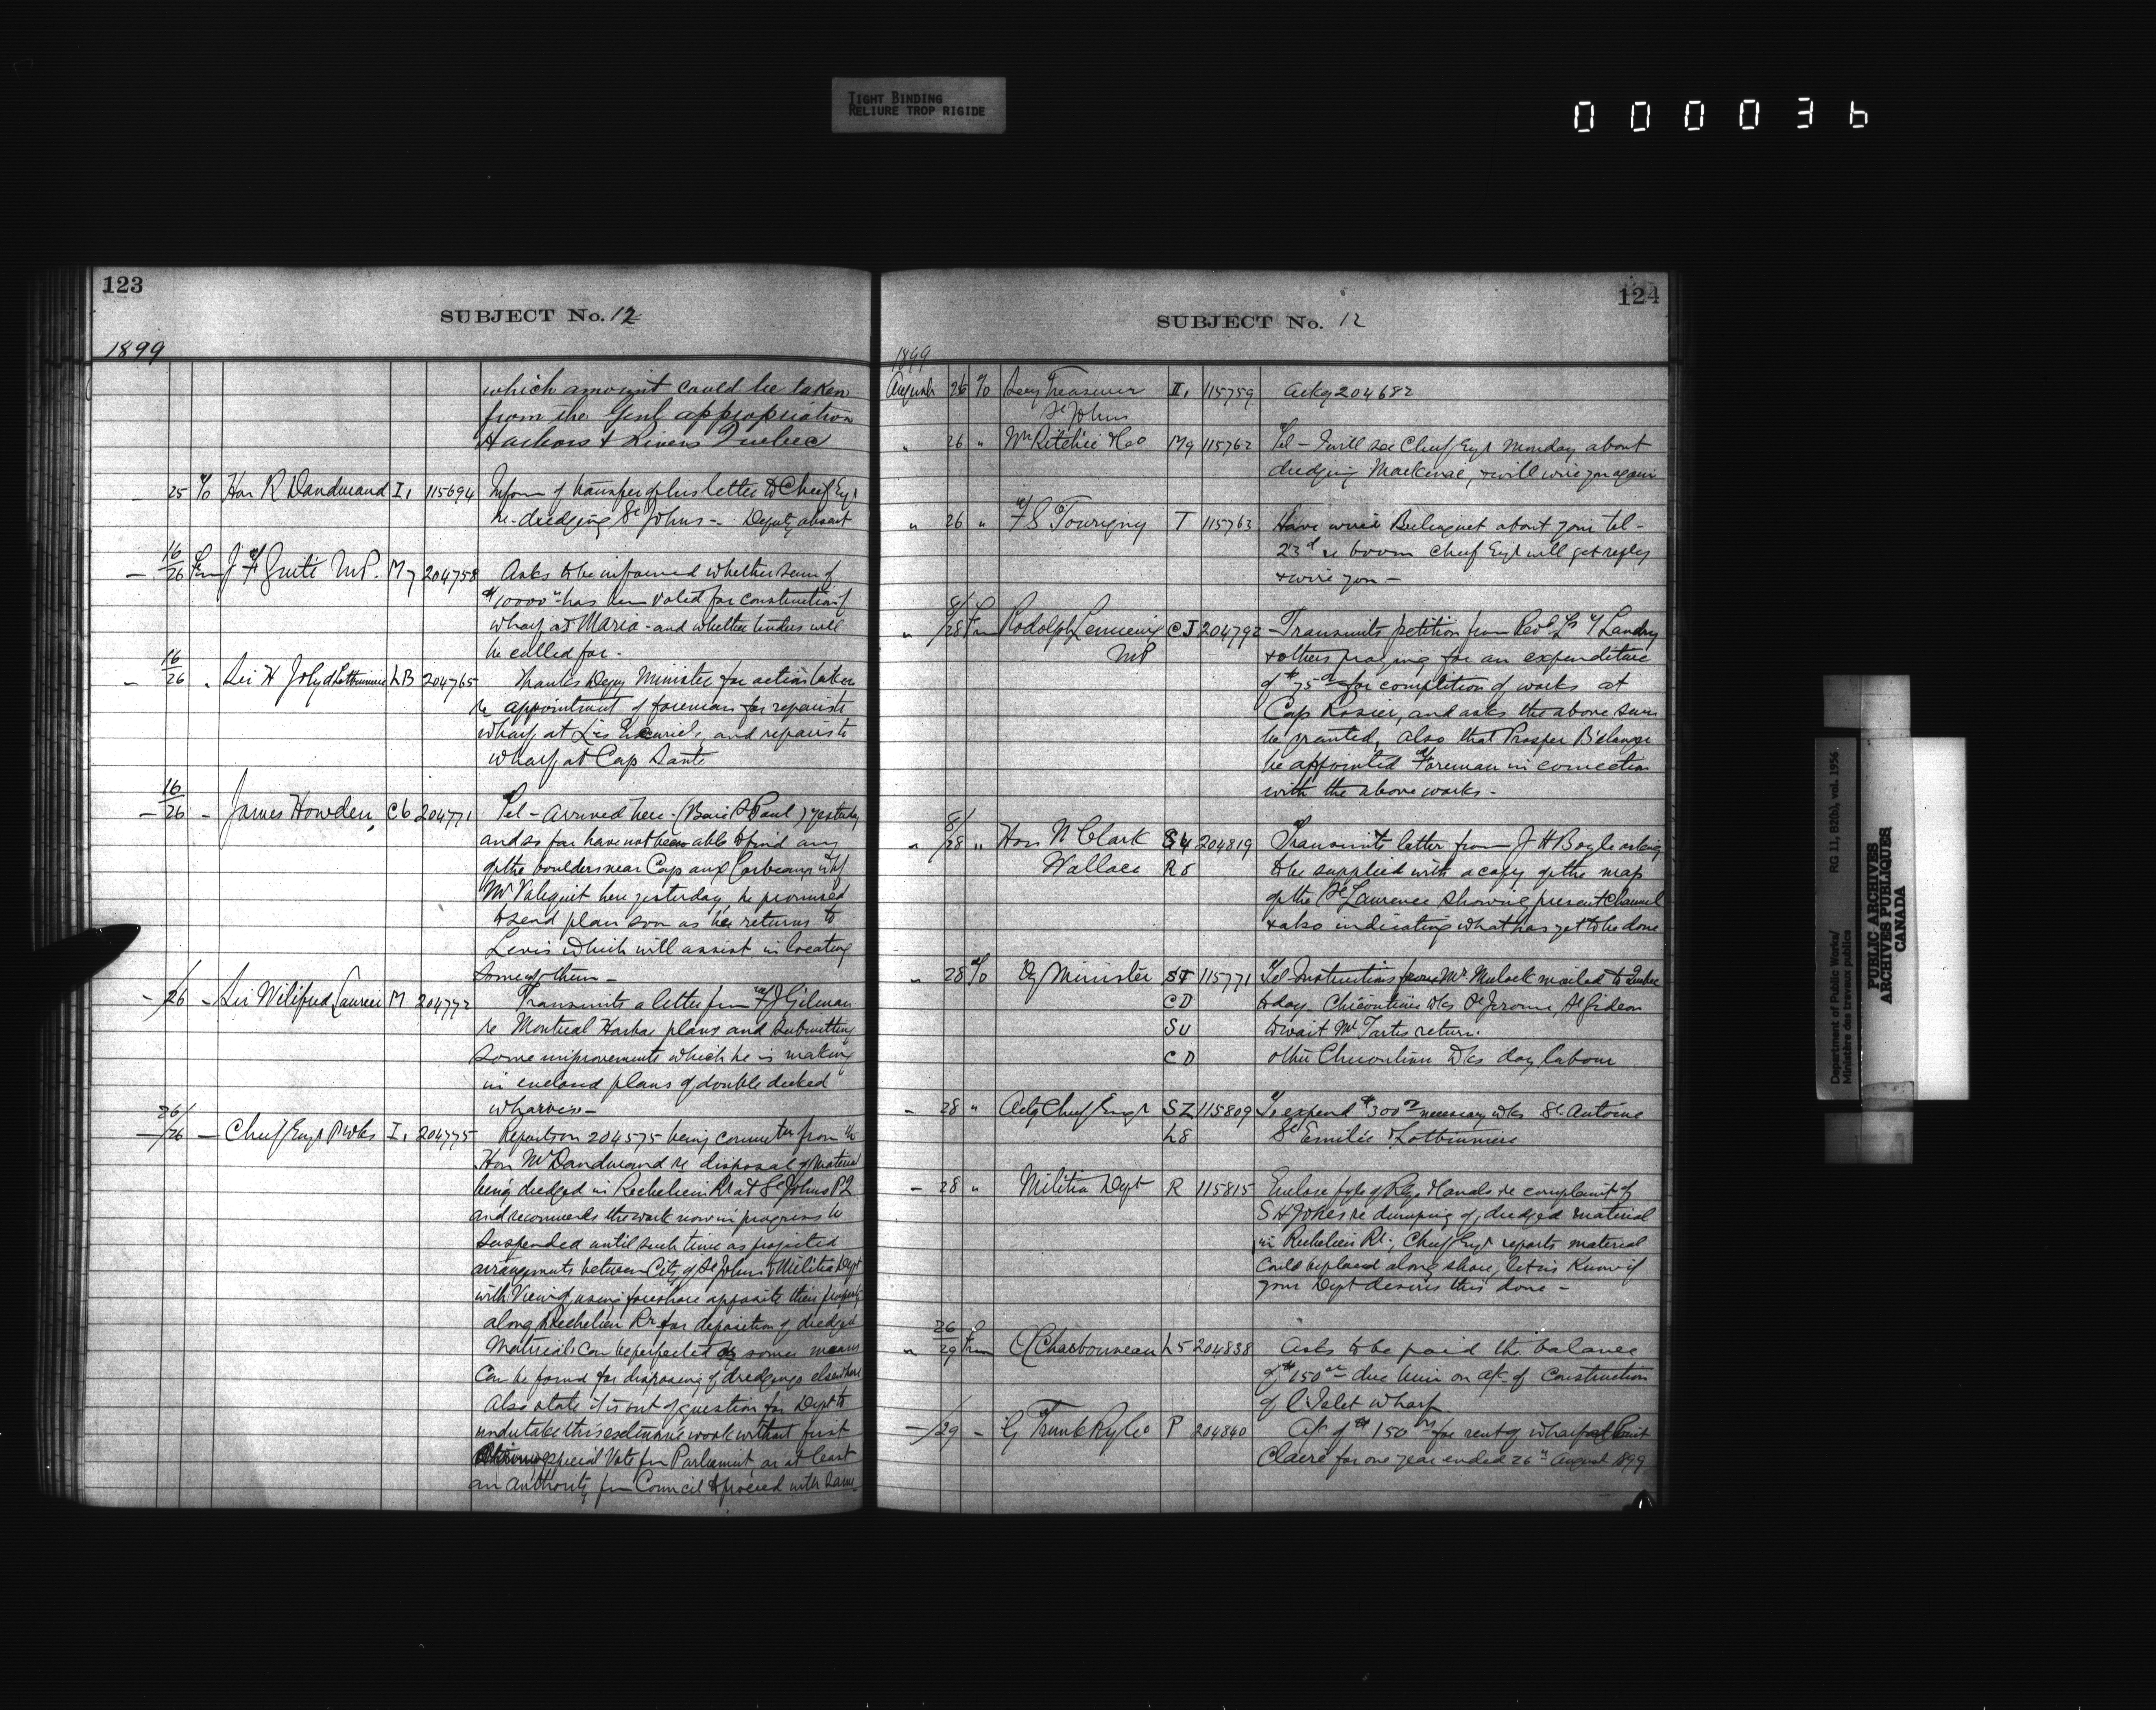 TIGHT BINDING
RELIURE TROP RIGIDE
000036
123
SUBJECT No. 12
1899
which amount could be taken
from the Genl appropriation
Harbors & Rivers Quebec
25 To Hon R Dandurand I, 115694 Inform of transfer of his letter to Chief Engr
re dredging St Johns - Deputy absent
16/26 From J F Guité M.P. My 204758 Asks to be informed whether sum of
$10000 has been voted for construction of
wharf at Maria - and whether tenders will
be called for -
16/26 " Sir H Joly d Lotbiniere LB 204765 Thanks Depy Minister for action taken
re appointment of foreman for repairs to
wharf at and repairs to
wharf at Cap Santé
16/26 - James Howden C6 204771 Tel - Arrived here (Baie St Paul) yesterday
and so far have not been able to find any
of the boulders near Cap aux Corbeaux
Mr Valiquet here yesterday, he promised
to send plan soon as he returns to
Levis which will assist in locating
some of them -
- /26 - Sir Wilfred Laurier M 204772 Transmits a letter from F J Gilman
re Montreal Harbor plans and submitting
some improvements which he is making
in enclosed plans of double decked
wharves -
26/26 - Chief Engr P Wks I, 204775 Reports on 204575 being from the
Hon Mr Dandurand re disposal of material
being dredged in Richelieu R at St Johns PQ
and recommends the work now in progress be
suspended until such time as projected
arrangements between City of St Johns & Militia Dept
with view of using foreshore opposite their property
along Richelieu Rr for deposition of dredged
Material can be perfected or some means
can be found for disposing of dredgings elsewhere
Also state it is out of question for Dept to
undertake this extensive work without first
obtaining special Vote from Parliament or at least
an authority from Council to proceed with same
124
SUBJECT No. 12
1899
August 26 To Secy Treasurer II, 115759 Ackg 204682
St Johns
" 26 " Wm Ritchie & Co Mg 115762 Tel - I will see Chief Engr Monday about
dredging Mackenzie, & will wire you again
" 26 " F S Tourigny T 115763 Have wired Belinguet about your tel -
23d re boom Chief Engr will get reply
& wire you -
8/28 From Rodolph Lemieux CJ 204792 Transmits petition from Revd Landry
MP
& others praying for an expenditure
of $75 for completion of works at
Cap Rosier, and asks the above sum
be granted, also that Prosper Bélanger
be appointed Foreman in connection
with the above works -
8/28 " Hon N Clark S4 204819 Transmits letter from J H Boyle asking
Wallace R8 to be supplied with a copy of the map
of the St Laurence showing present Channel
& also indicating what has yet to be done
" 28 To Dy Minister ST 115771 Tel - Instructions from Mr Mulock mailed to Quebec
CD today. Chicoutimi Wks St Jerome St Gideon
SU to wait Mr Tartes return.
CD other Chicoutimi Wks day labour
- 28 " Actg Chief Engr SZ 115809 To expend $300 necessary wks St Antoine
L8 St Emilie & Lotbiniere
- 28 " Militia Dept R 115815 Enclose fyle of Rlys & Canals re complaint of
S H Jones re dumping of dredged material
in Richelieu Rr, Chief Engr reports material
Could be placed along shore, let us know if
your Dept desires this done -
26/29 From C Charbonneau L5 204838 Asks to be paid the balance
of $150 due him on a/c of Construction
of L'Islet wharf
- /29 - G Trunk Ry Co P 204840 A/c of $150 for rent of wharf at Point
Claire for one year ended 26th August 1899
Department of Public Works/
Ministère des travaux publics
RG 11, B2(b), vol. 1956
PUBLIC ARCHIVES
ARCHIVES PUBLIQUES
CANADA